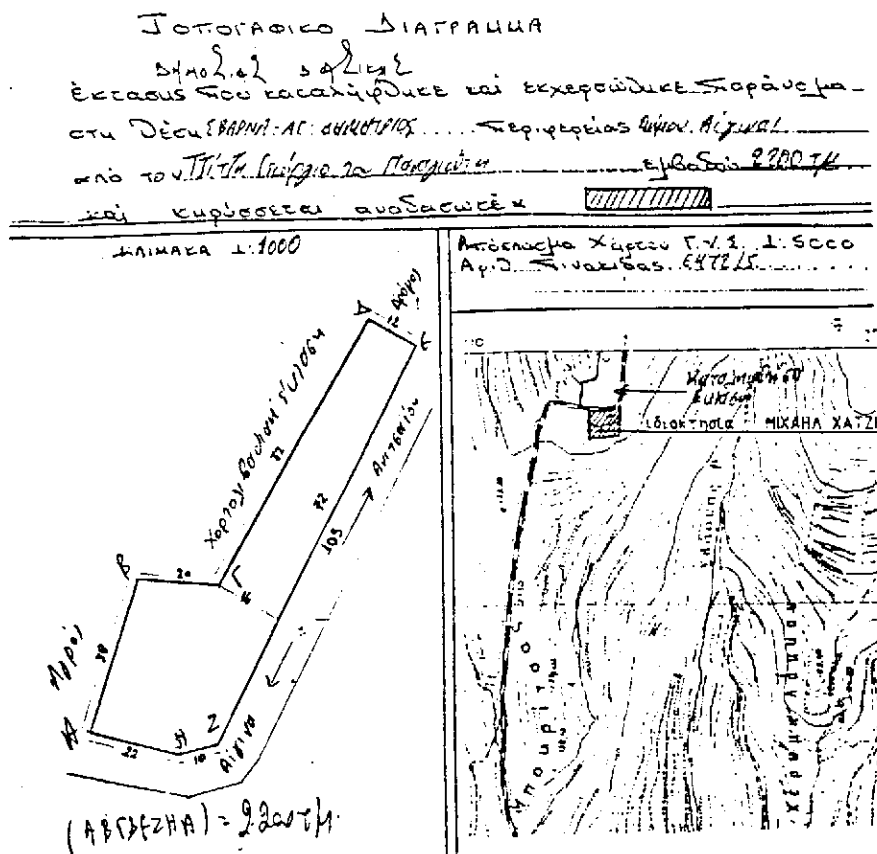 ΤΟΠΟΓΡΑΦΙΚΟ ΔΙΑΓΡΑΜΜΑ
ΔΗΜΟΣΙΑΣ ΔΑΣΙΚΗΣ
έκτασης που καταλήφθηκε και εκχερσώθηκε παράνομα
στη θέση ΣΒΑΡΝΑ-ΑΓ: ΔΗΜΗΤΡΙΟΣ..... περιφερείας Δήμου Αίγινας
από τον Γεώργιο του εμβαδού 2200 ΤΜ
και κηρύσσεται αναδασωτέα
ΚΛΙΜΑΚΑ 1:1000
Απόσπασμα Χάρτου Γ.Υ.Σ. 1:5000
Αριθ. πινακίδας 6472/5
Δ
12
Δρόμος
Ε
Χορτολιβαδική έκταση
72
72
105
Β
20
Γ
16
Αγρός
38
Α
22
Η
10
Ζ
Αίγινα
(ΑΒΓΔΕΖΗΑ) = 2200 τ/μ.
έκταση
ιδιοκτησία ΜΙΧΑΗΛ ΧΑΤΖΗ
ΜΠΟΚΡΙΤΟΣ